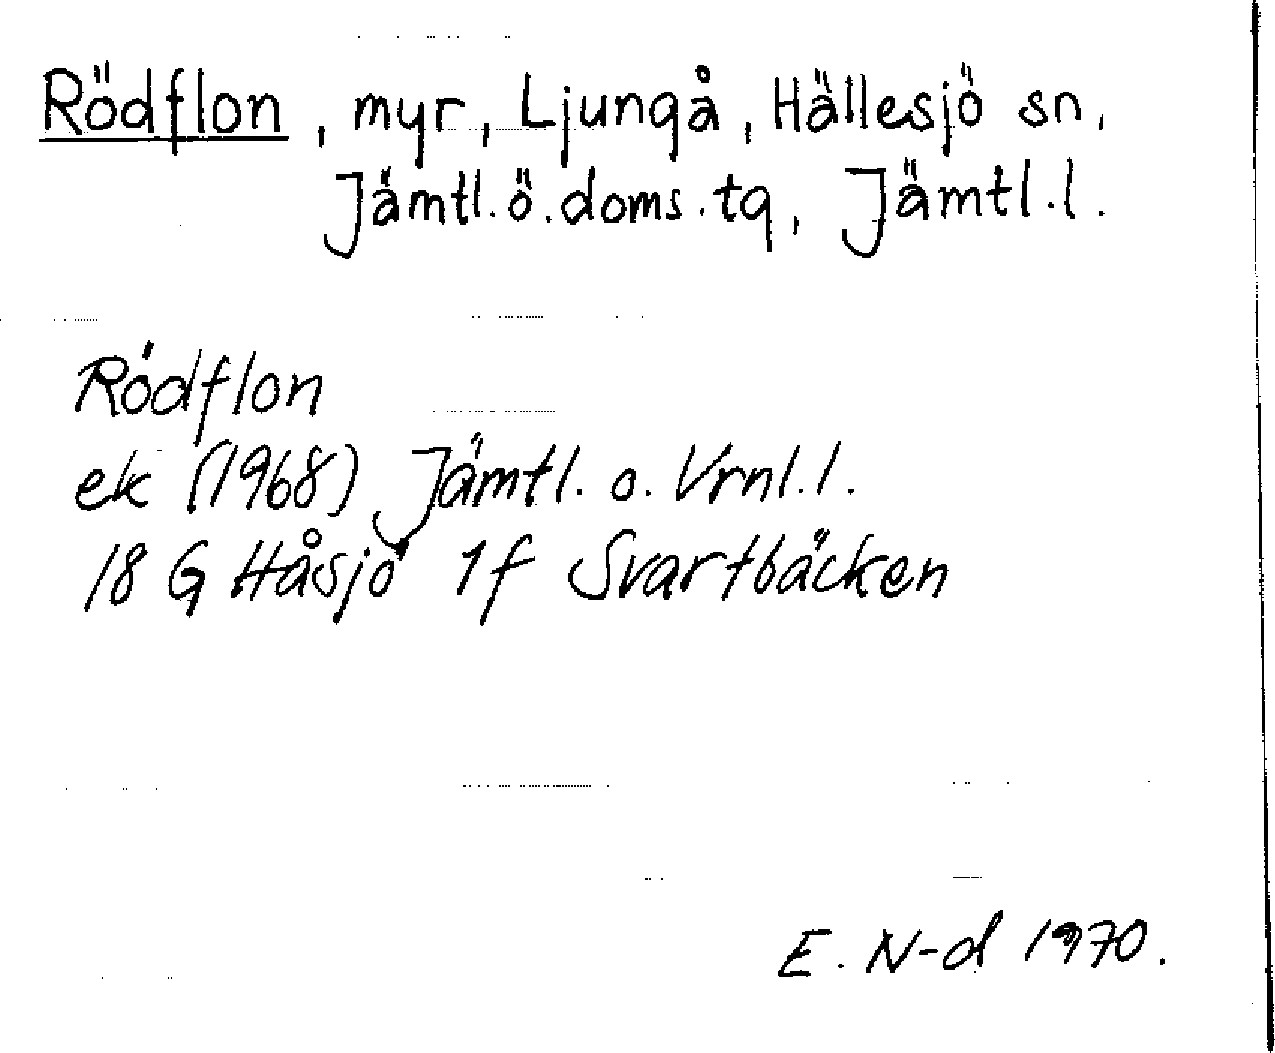 Rödflon, myr, Ljungå, Hällesjö sn,
Jämtl. ö. doms. tg, Jämtl. l.
Rödflon
ek (1968) Jämtl. o. Vrnl. l.
18 G Håsjö 1f Svartbäcken
E. N-d 1970.